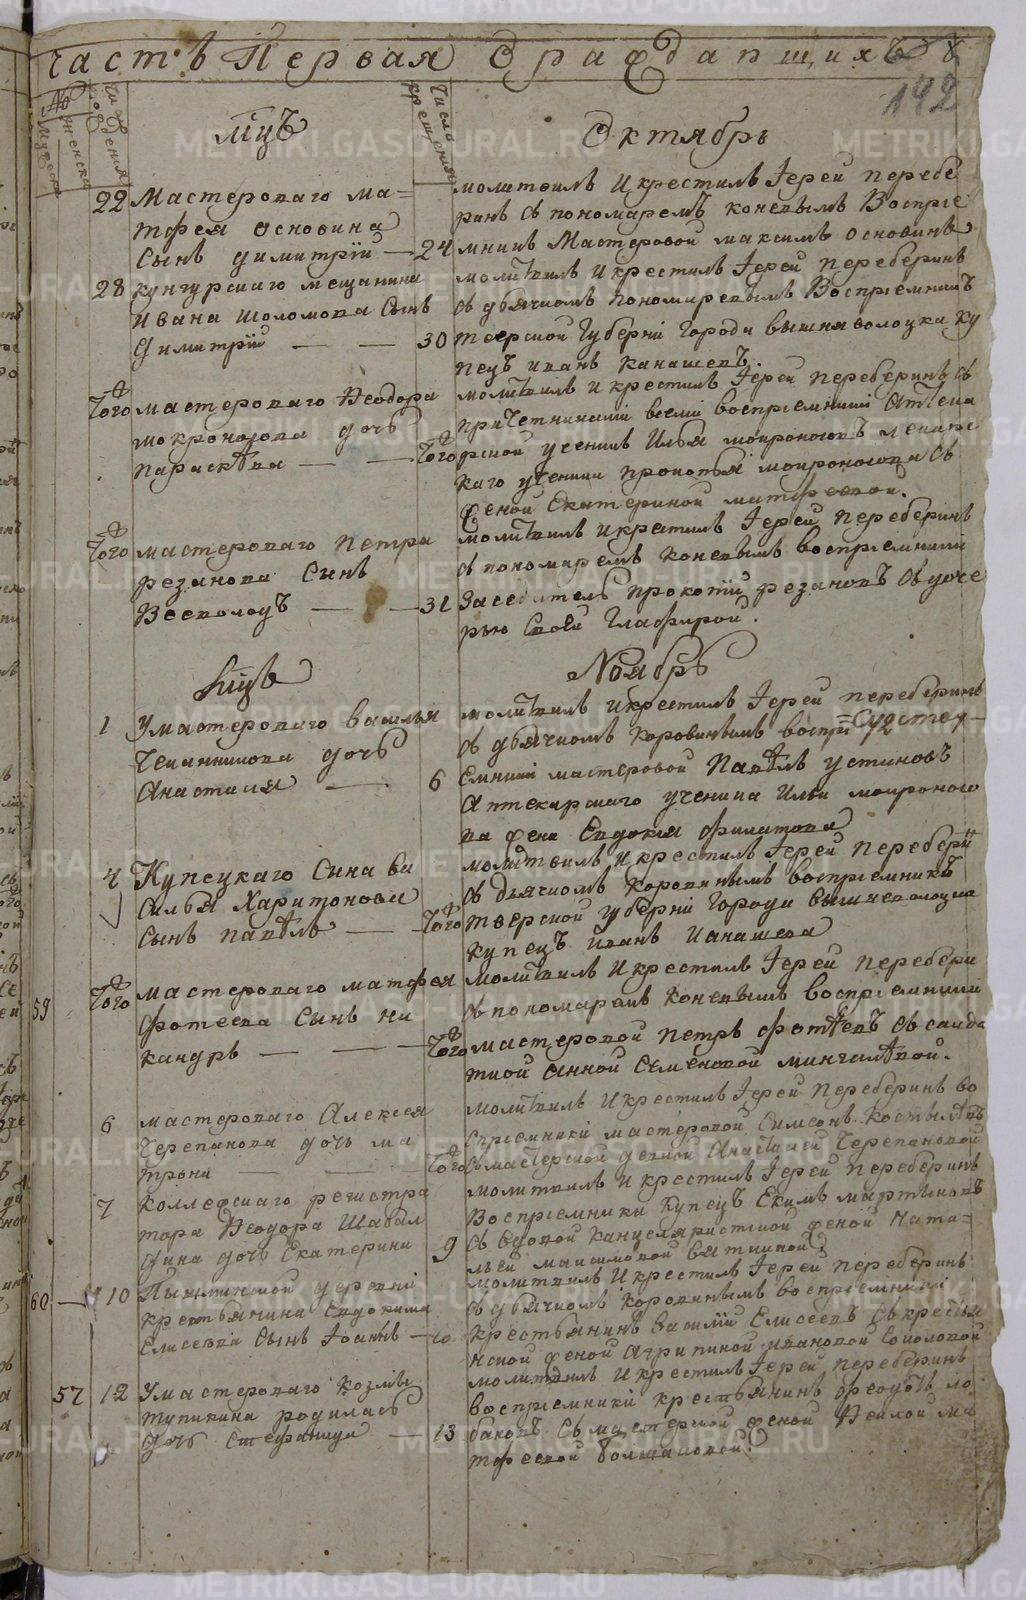 часть Первая О раждающихъся
142
№
Мужеска
женска
Число рождения
мцъ
Число крещения
Октябрь
22 Мастероваго ма=
тфея Основина
Сынъ димитрий — 24
молитвилъ и крестилъ Иерей перебе
ринъ съ пономаремъ коневымъ Восприе
мникъ Мастеровой максимъ Основинъ
28 кунгурскаго мещанина
Ивана Шоломова Сынъ
Димитрий — — 30
молитвилъ и крестилъ Иерей переберинъ
съ дьячкомъ пономаревымъ Восприемникъ
тверской Губерни Города вышня волочка ку
пецъ иванъ канашевъ.
Того мастероваго Феодора
мокроносова дочь
параскева — — Того
молитвилъ и крестилъ Иерей переберинъ съ
причетниками всеми восприемники
ученикъ Илья мокроносовъ лекарс
каго ученика прокопья мокроносова съ
женой Екатериной матфеевой.
Того мастероваго петра
резанова Сынъ
Всеволодъ — — 31
молитвилъ и крестилъ Иерей переберинъ
съ пономаремъ коневымъ восприемники
Заседатель прокопий резановъ съ доче
рью своей Глафирой.
мцъ
Ноябрь
1 У мастероваго василья
дочь
Анастасия — 6
молитвилъ и крестилъ Иерей переберинъ
съ дьячкомъ коровинымъ воспри=
емники мастеровой Павелъ устиновъ
Аптекарскаго ученика Ильи мокроносо
ва жена Евдокия филатова
4 Купецкаго Сына ва
силья Харитонова
Сынъ павелъ — — Того
молитвилъ и крестилъ Иерей перебери
съ дьячкомъ коровинымъ восприемникъ
тверской губерни Города вышневолоцка
купецъ иванъ канашева
59 Того мастероваго матфея
фотеева Сынъ ни
кандръ — — — Того
молитвилъ и крестилъ Иерей перебери
съ пономаремъ коневымъ восприемники
мастеровой петръ фотеевъ съ салда
ткой Анной Семеновой
6 мастероваго Алексея
Черепанова дочь ма
трона — — Того
молитвилъ и крестилъ Иерей переберинъ во
сприемники мастеровой Симеонъ Костылевъ
съ мастерской девкой Анастасией Черепановой
7 коллежскаго регистра
тора Феодора Шабал
дина дочь Екатерина 9
молитвилъ и крестилъ Иерей переберинъ
Восприемники купецъ Екимъ мартыновъ
съ вдовой канцеляристкой женой Ната=
льей максимовой вяткиной
60 — 10 Пышминской деревни
крестьянина Евдокима
Елисеева Сынъ Иоаннъ — 10
молитвилъ и крестилъ Иерей переберинъ
съ дьячкомъ коровинымъ восприемники
крестьянинъ Василий Елисеевъ съ крестья
нской женой Агрипиной ивановой
57 12 У мастероваго козмы
тупикина родилась
дочь Стефанида — 13
молитвилъ и крестилъ Иерей переберинъ
восприемники крестьянинъ феодоръ ло
баковъ съ мастерской женой Феклой ма
тфеевой Большаковой